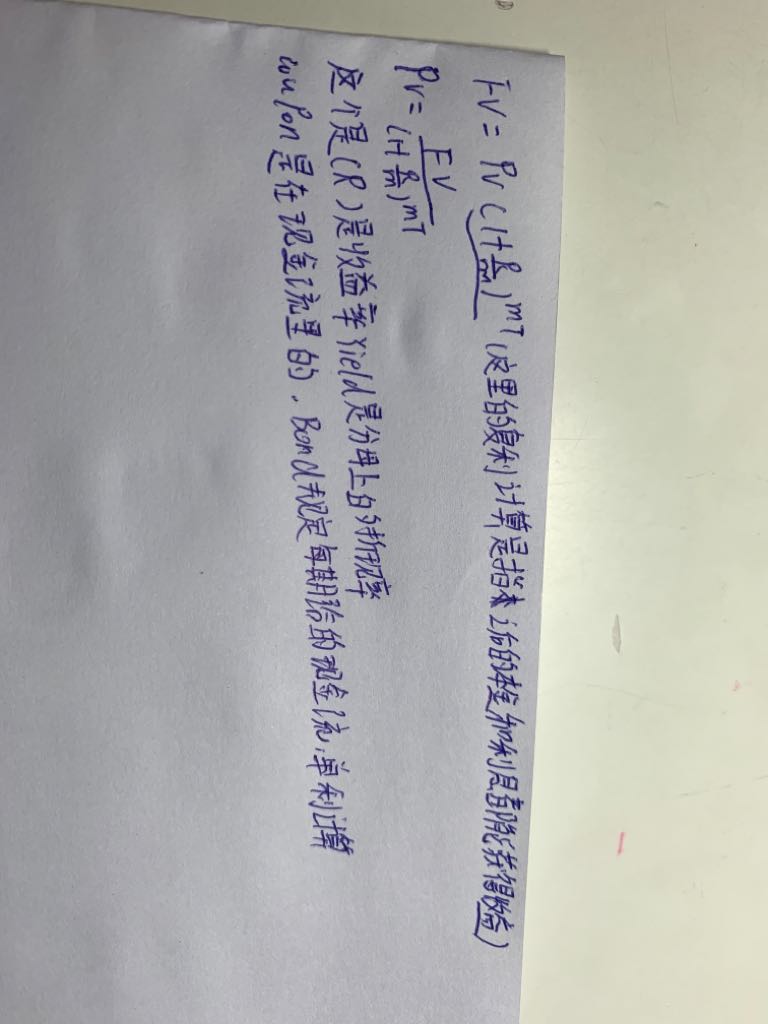 FV = PV (1+R/m)^mT (这里的复利计算是指未还的本金和利息都能获得收益)
PV = FV/(1+R/m)^mT
这个是(R)是收益率Yield是分母上的折现率
coupon是在现金流里的.Bond规定每期给的现金流,单利计算